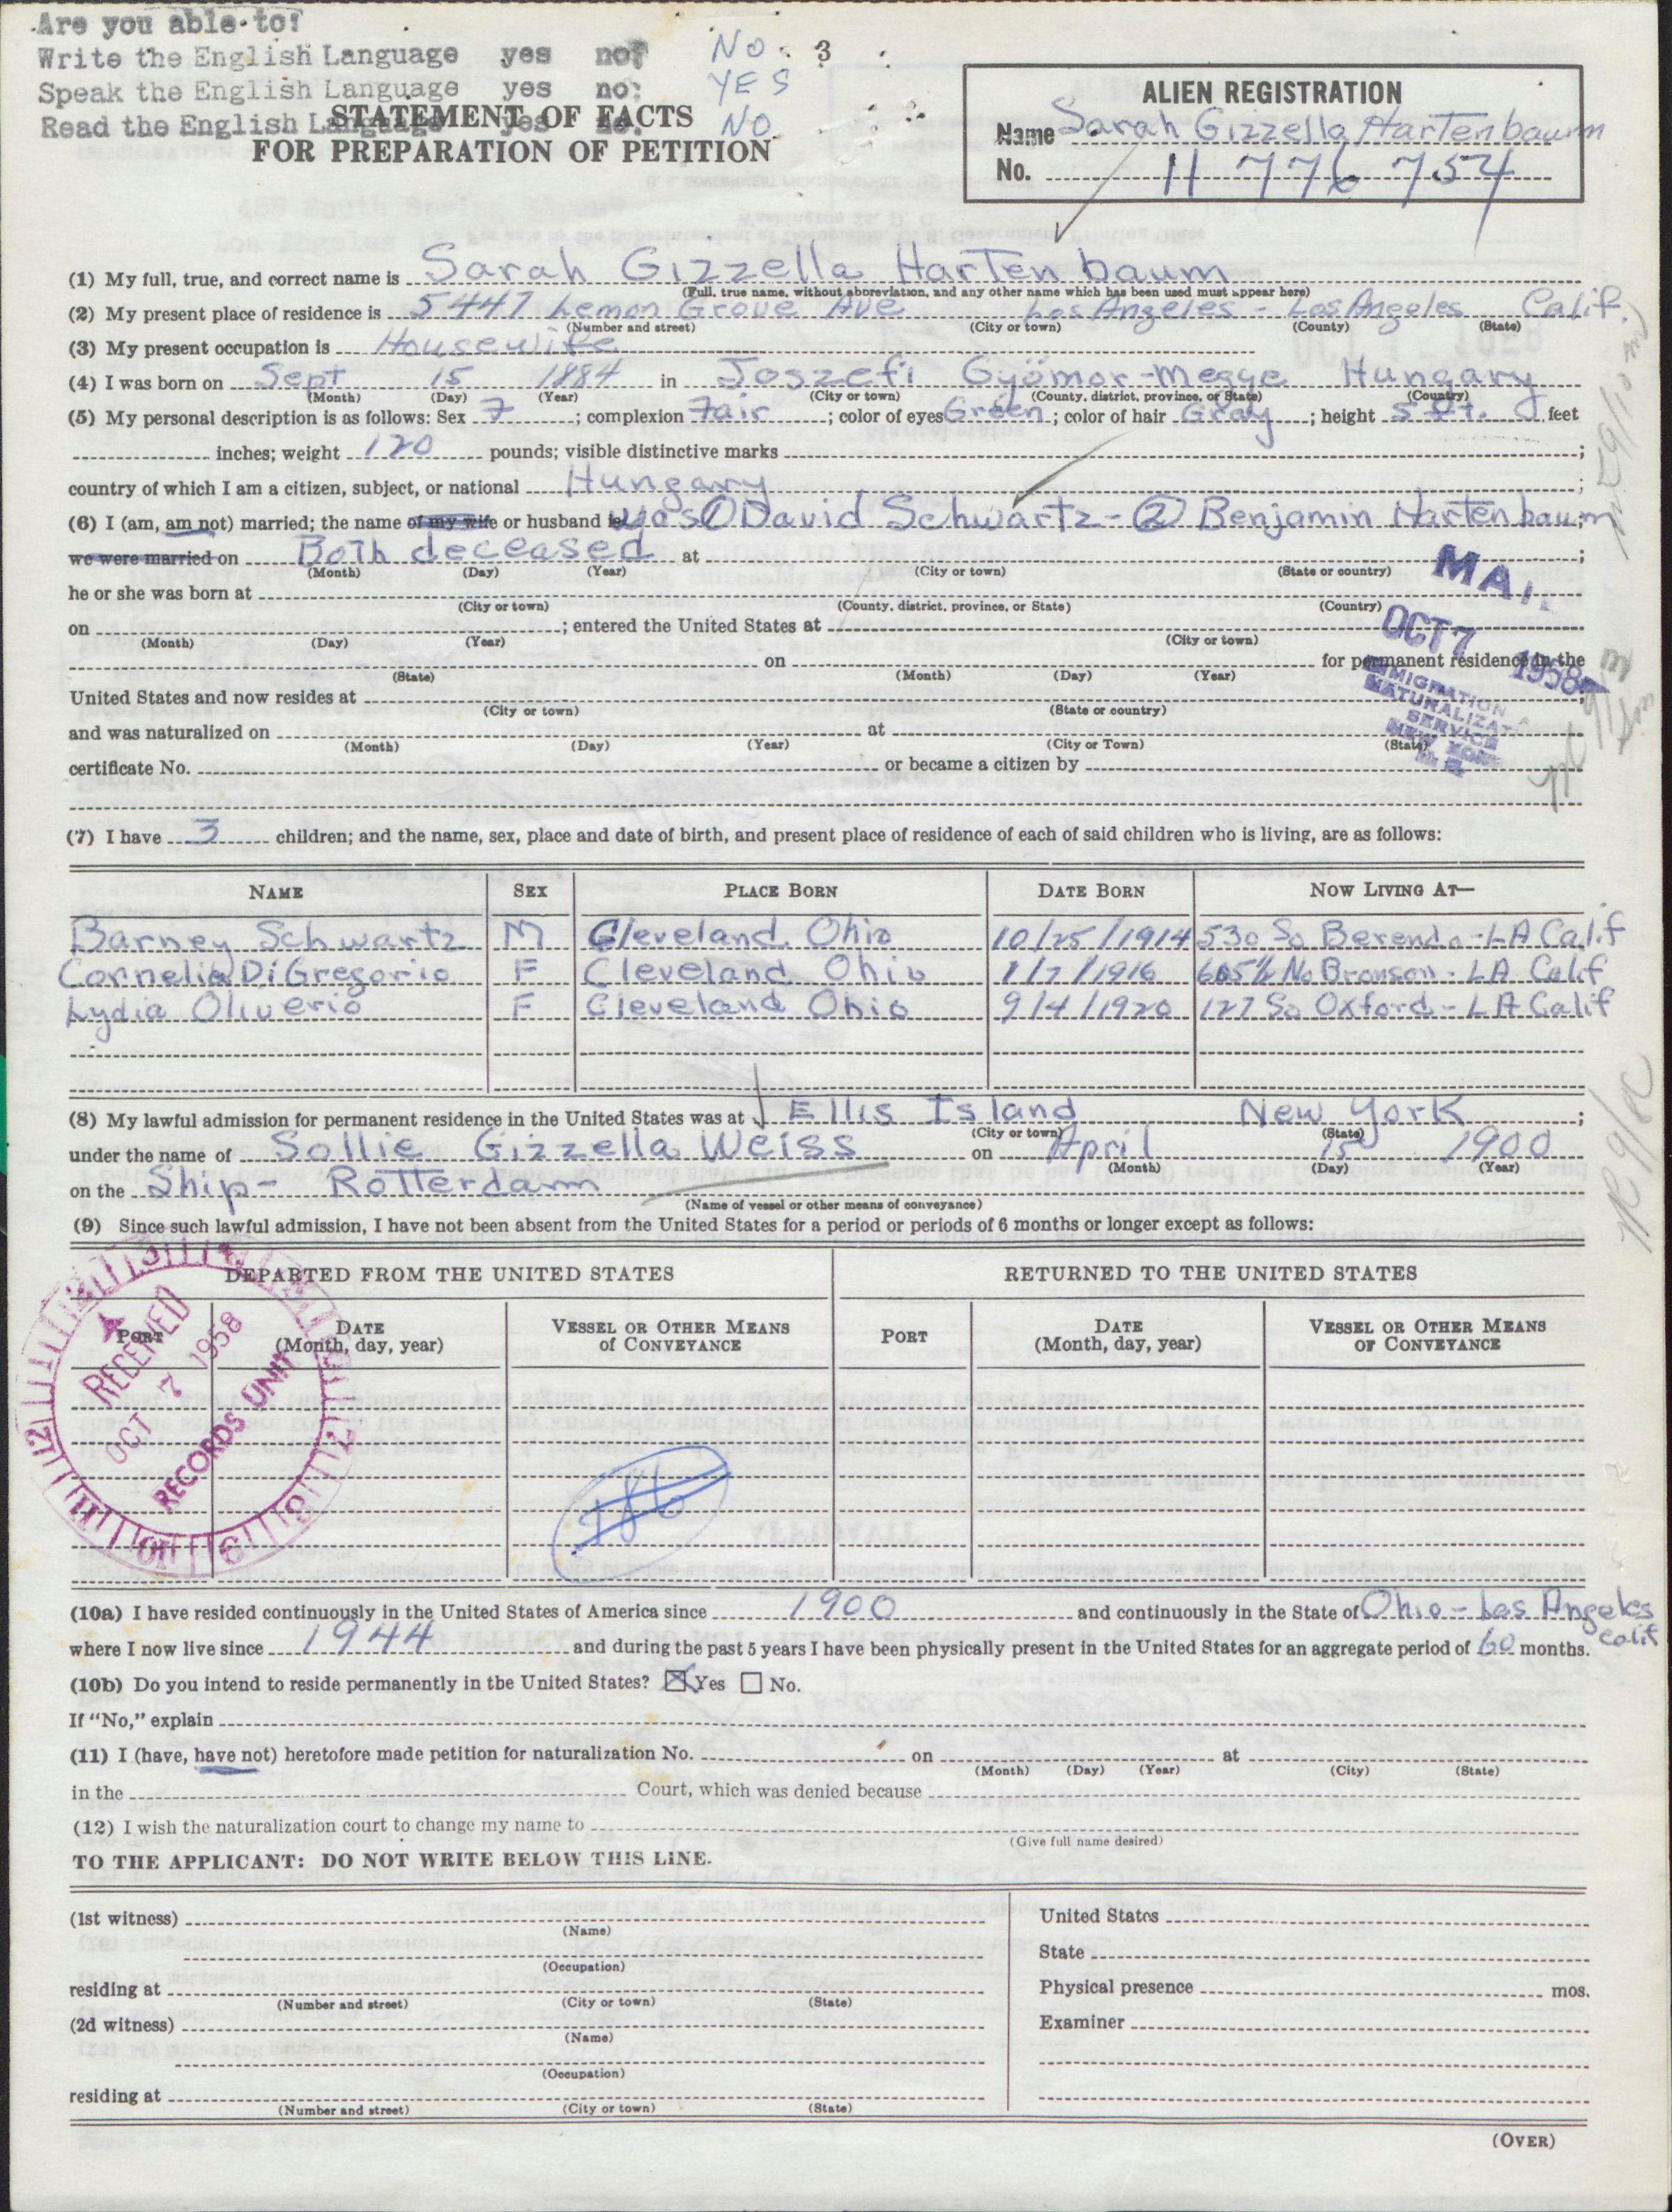 Are you able to:
Write the English Language yes no? NO 3
Speak the English Language yes no: YES
Read the English Language yes no. NO
STATEMENT OF FACTS
FOR PREPARATION OF PETITION
ALIEN REGISTRATION
Name Sarah Gizzella Hartenbaum
No. 11 776 754
(1) My full, true, and correct name is Sarah Gizzella Hartenbaum
(Full, true name, without abbreviation, and any other name which has been used must appear here)
(2) My present place of residence is 5447 Lemon Grove Ave Los Angeles - Los Angeles Calif.
(Number and street) (City or town) (County) (State)
(3) My present occupation is Housewife
(4) I was born on Sept 15 1884 in Joszefi Gyömor-Megye Hungary
(Month) (Day) (Year) (City or town) (County, district, province, or State) (Country)
(5) My personal description is as follows: Sex F; complexion Fair; color of eyes Green; color of hair Gray; height 5 ft. feet
inches; weight 120 pounds; visible distinctive marks ;
country of which I am a citizen, subject, or national Hungary ;
(6) I (am, am not) married; the name of my wife or husband is was ① David Schwartz - ② Benjamin Hartenbaum;
we were married on Both deceased at ;
(Month) (Day) (Year) (City or town) (State or country)
he or she was born at
(City or town) (County, district, province, or State) (Country)
on ; entered the United States at
(Month) (Day) (Year) (City or town)
on for permanent residence in the
(State) (Month) (Day) (Year)
United States and now resides at
(City or town) (State or country)
and was naturalized on at
(Month) (Day) (Year) (City or Town) (State)
certificate No. or became a citizen by
OCT 7 1958
IMMIGRATION &
NATURALIZATION
SERVICE
NEW YORK
(7) I have 3 children; and the name, sex, place and date of birth, and present place of residence of each of said children who is living, are as follows:
NAME SEX PLACE BORN DATE BORN NOW LIVING AT—
Barney Schwartz M Cleveland Ohio 10/25/1914 530 So Berendo - LA Calif
Cornelia DiGregorio F Cleveland Ohio 1/7/1916 605½ No Bronson - LA Calif
Lydia Oliverio F Cleveland Ohio 9/4/1920 127 So Oxford - LA Calif
(8) My lawful admission for permanent residence in the United States was at Ellis Island New York ;
(City or town) (State)
under the name of Sollie Gizzella Weiss on April 15 1900
(Month) (Day) (Year)
on the Ship - Rotterdam
(Name of vessel or other means of conveyance)
(9) Since such lawful admission, I have not been absent from the United States for a period or periods of 6 months or longer except as follows:
DEPARTED FROM THE UNITED STATES RETURNED TO THE UNITED STATES
PORT DATE (Month, day, year) VESSEL OR OTHER MEANS OF CONVEYANCE PORT DATE (Month, day, year) VESSEL OR OTHER MEANS OF CONVEYANCE
RECEIVED
OCT 7 1958
RECORDS UNIT
(10a) I have resided continuously in the United States of America since 1900 and continuously in the State of Ohio - Los Angeles Calif
where I now live since 1944 and during the past 5 years I have been physically present in the United States for an aggregate period of 60 months.
(10b) Do you intend to reside permanently in the United States? ☒ Yes ☐ No.
If "No," explain
(11) I (have, have not) heretofore made petition for naturalization No. on at
(Month) (Day) (Year) (City) (State)
in the Court, which was denied because
(12) I wish the naturalization court to change my name to
(Give full name desired)
TO THE APPLICANT: DO NOT WRITE BELOW THIS LINE.
(1st witness) United States
(Name)
State
(Occupation)
residing at Physical presence mos.
(Number and street) (City or town) (State)
(2d witness) Examiner
(Name)
(Occupation)
residing at
(Number and street) (City or town) (State)
(OVER)